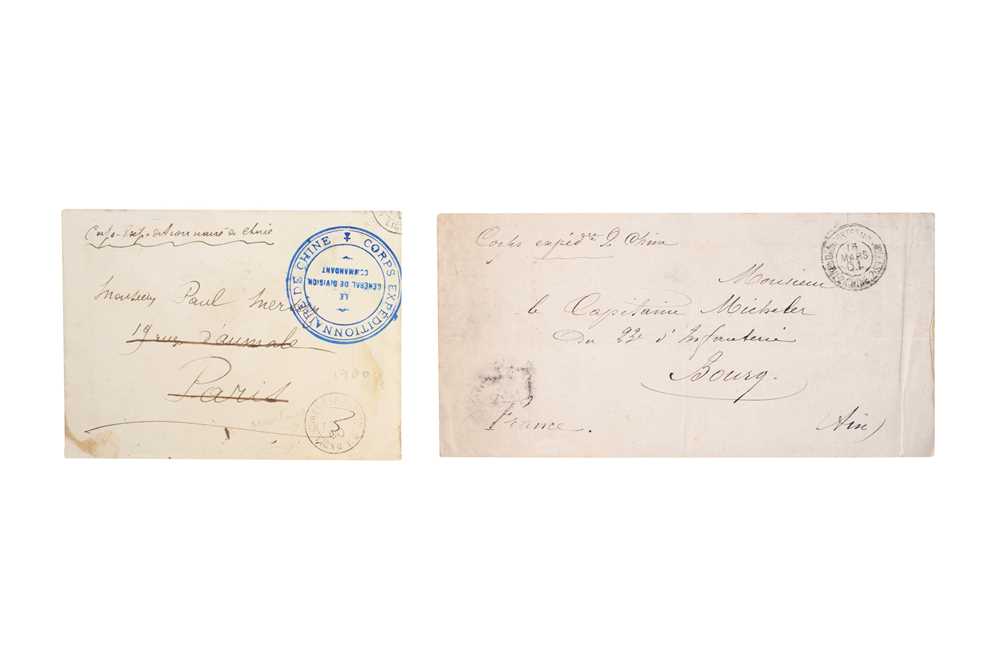 Corps Expéditionnaire de Chine
CORPS EXPÉDITIONNAIRE DE CHINE
LE
GÉNÉRAL DE DIVISION
COMMANDANT
Monsieur Paul
19 rue d'aumale
Paris
1900
Corps expédre de Chine
14
MARS
01
Monsieur
le Capitaine Micheler
du 23e d'Infanterie
Bourg.
France.
(Ain)